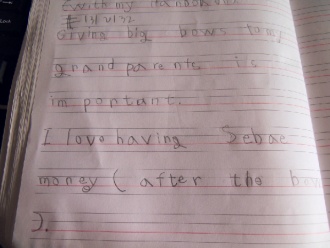 with my
Giving big bows to my
grand parents is
im portant.
I love having Sebae
money ( after the bow
).